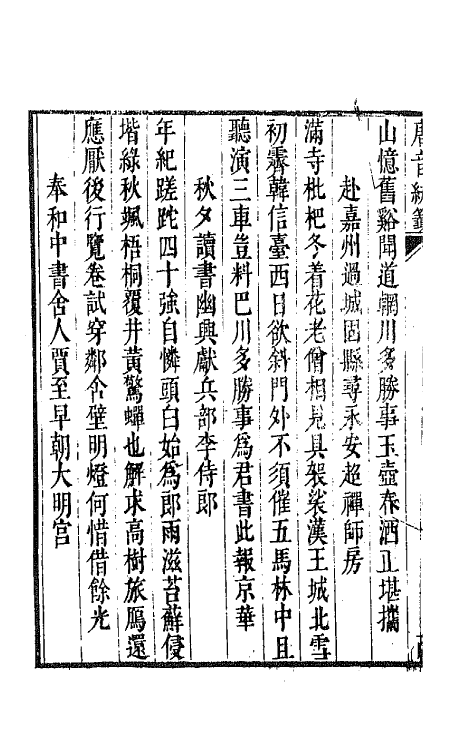 唐音統籖
山憶舊谿聞道輞川多勝事玉壺春酒正堪攜
赴嘉州過城固縣尋永安超禪師房
滿寺枇杷冬着花老僧相見具袈裟漢王城北雪
初霽韓信臺西日欲斜門外不須催五馬林中且
聽演三車豈料巴川多勝事爲君書此報京華
秋夕讀書幽興獻兵部李侍郎
年紀蹉跎四十強自憐頭白始爲郎雨滋苔蘚侵
堦綠秋颯梧桐覆井黃驚蟬也解求高樹旅鴈還
應厭後行覽卷試穿鄰舍壁明燈何惜借餘光
奉和中書舍人賈至早朝大明宫